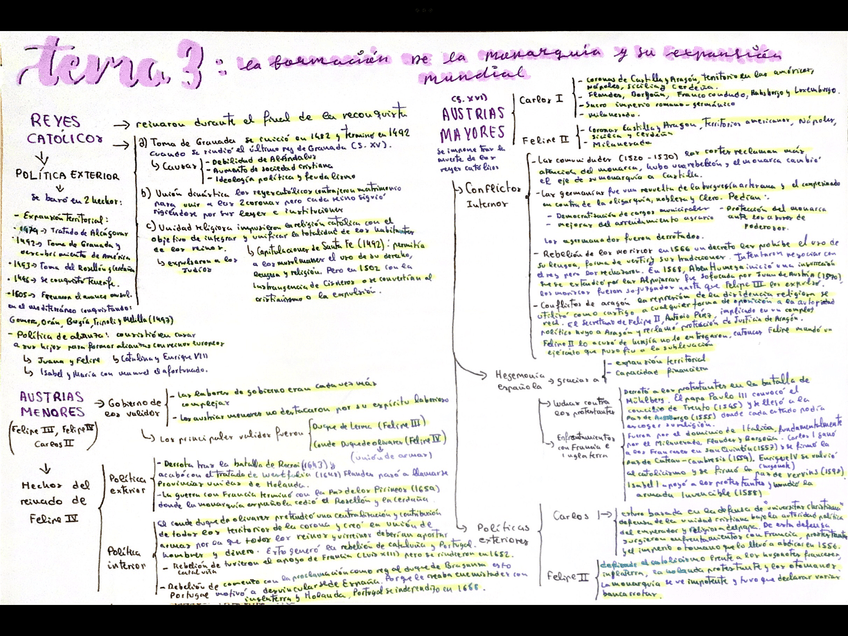 tema 3: la formación de la monarquía y su expansión
mundial
REYES
CATÓLICOS → reinaron durante el final de la reconquista
a) Toma de Granada se inició en 1482 y terminó en 1492
cuando se rindió el último rey de Granada (S. XV).
↳ Causas - Debilidad de Alandalus
- Aumento de sociedad cristiana
- Ideología política y feudalismo
b) Unión dinástica los reyes católicos contrajeron matrimonio
para unir a las 2 coronas pero cada reino siguió
rigiéndose por sus leyes e instituciones
c) Unidad religiosa impusieron la religión católica con el
objetivo de integrar y unificar la totalidad de los habitantes
de los reinos.
↳ expulsaron a los
judíos
↳ Capitulaciones de Santa Fe (1492): permitía
a los musulmanes el uso de su derecho,
lengua y religión. Pero en 1502 con la
de Cisneros o se convertían al
cristianismo o la expulsión.
POLÍTICA EXTERIOR
se basó en 2 hechos:
- Expansión territorial:
- 1479 → Tratado de
- 1492 → Toma de Granada y
descubrimiento de América
- 1493 → Toma del Rosellón y Cerdaña
- 1496 → se conquistó Tenerife.
- 1505 →
en el mediterráneo conquistando:
Gomera, Orán, Bugía, Trípoli y Melilla (1497)
- Política de alianza: consistió en casar
a sus hijos para formar alianzas con reinos europeos
↳ Juana y Felipe ↳ Catalina y Enrique VIII
↳ Isabel y María con Manuel el afortunado.
AUSTRIAS
MENORES
(Felipe III, Felipe IV
Carlos II)
→ Gobierno de
los validos
- Las labores de gobierno eran cada vez más
complejas
- Los austrias menores no destacaron por su espíritu laborioso
↳ Los principales validos fueron
Duque de Lerma (Felipe III)
Conde Duque de Olivares (Felipe IV)
(unión de armas)
Hechos del
reinado de
Felipe IV
Política
exterior
- Derrota tras la batalla de Rocroi (1643) y
acabó con el tratado de Westfalia (1648) Flandes pasó a llamarse
Provincias Unidas de Holanda.
- La guerra con Francia terminó con la Paz de los Pirineos (1659)
donde la monarquía española cedió el Rosellón y la Cerdaña
Política
interior
El conde duque de olivares pretendió una centralización y contribución
de todos los territorios de la corona y creó la unión de
armas por la que todos los reinos y virreinos deberían aportar
hombres y dinero. Esto generó la rebelión de cataluña y Portugal.
- Rebelión de Cataluña tuvieron el apoyo de Francia (Luis XIII) pero se rindieron en 1652.
- Rebelión de comentó con la proclamación como rey al duque de Braganza esto
Portugal motivó a desvincularse de España. Porque le creaba enemistades con
inglaterra y Holanda, Portugal se independizó en 1668.
(S. XVI)
AUSTRIAS
MAYORES
se impone tras la
muerte de los
reyes católicos
Carlos I
- coronas de Castilla y Aragón, territorio en las américas,
Nápoles, sicilia y cerdeña.
- Flandes, Borgoña, Franco condado, Habsburgo y Luxemburgo.
- Sacro imperio romano-germánico
- Milanesado.
Felipe II
- Coronas Castilla y Aragon, territorios americanos, Nápoles,
sicilia y cerdeña
- Milanesado
Conflictos
Internos
- Las comunidades (1520 - 1530) las cortes reclaman más
atención del monarca, hubo una rebelión y el monarca cambió
el eje de su monarquía a Castilla.
- Las germanías fue una revuelta de la burguesía artesana y el campesinado
en contra de la oligarquía, nobleza y clero. Pedían:
- Democratización de cargos municipales
- mejoras del arrendamiento agrario
- Protección del monarca
ante los abusos de
poderosos.
Los agermanados fueron derrotados.
- Rebelión de los moriscos en 1566 un decreto les prohíbe el uso de
su lengua, forma de vestir y sus tradiciones. Intentaron negociar con
el rey pero los rechazaron. En 1568, Aben Humeya inició una insurrección
que se extendió por las Alpujarras fue sofocada por Juan de Austria (1570)
los moriscos fueron hasta que Felipe III los expulsó.
- Conflictos de aragón la represión de la disidencia religiosa se
utilizó como castigo a cualquier forma de oposición a la autoridad
real. El secretario de Felipe II, Antonio Pérez, implicado en un complot
político huyó a Aragón y reclamó protección de Justicia de Aragón.
Felipe II lo acusó de herejía no lo entregaron, entonces Felipe mandó un
ejército que puso fin a la sublevación
Hegemonía
española → gracias a
- expansión territorial
- capacidad financiera
↳ Luchar contra
los protestantes
Derrotó a los protestantes en la batalla de
Mühlberg. El papa Paulo III convocó el
concilio de Trento (1545) y se llegó a la
Paz de Augsburgo (1555) donde cada estado podía
escoger su religión.
↳ Enfrentamientos
con Francia e
Inglaterra
fueron por el dominio de Italia, fundamentalmente
por el Milanesado, Flandes y Borgoña. Carlos I ganó
a los Franceses en San Quintín (1557) y se firmó la
paz de Cateau-Cambrésis (1559). Enrique IV se volvió
al catolicismo y se firmó la paz de Vervins (1598).
Isabel I apoyó a los protestantes y venció la
armada Invencible (1588)
Políticas
exteriores
Carlos I →
estuvo basada en la defensa de "universitas christiana"
defensa de la unidad cristiana bajo la autoridad política
del emperador y religiosa del papa. De esta defensa
surgieron enfrentamientos con Francia, protestantes
y el imperio otomano que lo llevó a abdicar en 1556.
Felipe II
defiende el catolicismo frente a los hugonotes franceses,
inglaterra, la holanda protestante y los otomanos.
La monarquía se ve impotente y tuvo que declarar varias
bancarrotas.